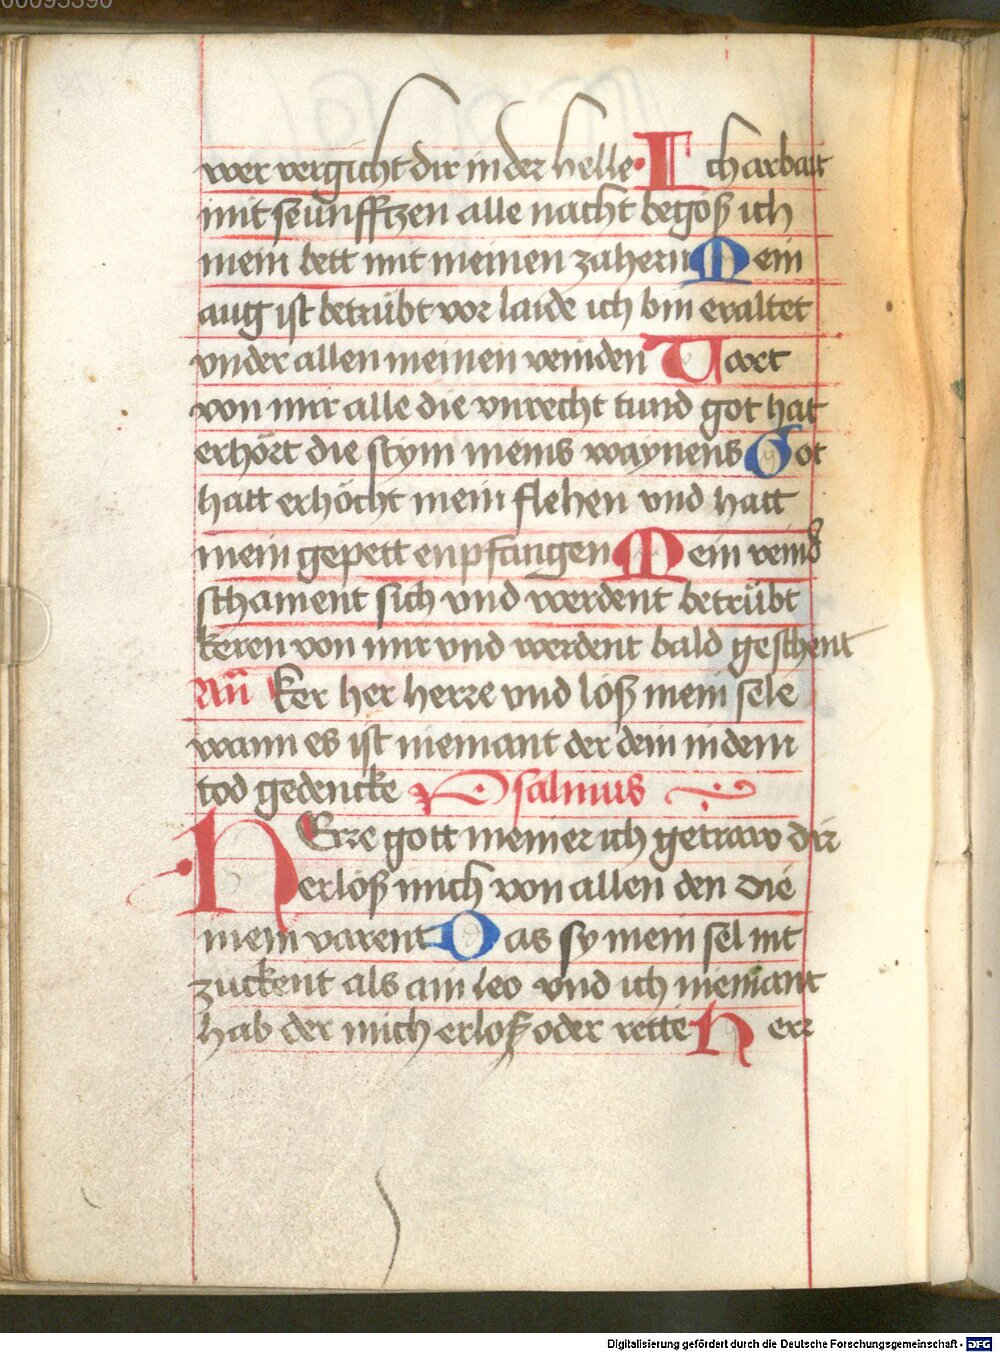 00095390
wer vergicht dir in der helle · Ich arbait
mit seünfftzen alle nacht begoß ich
mein bett mit meinen zahern Mein
aug ist betrübt vor laide ich bin eraltet
vnder allen meinen veinden Vart
von mir alle die vnrecht tund got hat
erhört die stym meins waynens Got
hatt erhöcht mein flehen vnd hatt
mein gepett enpfangen Mein veind
schament sich vnd werdent betrübt
keren von mir vnd werdent bald geschent
Añ ker her herre vnd löß mein sele
wann es ist niemant der dein in dem
tod gedencke Psalmus
HErre gott meiner ich getraw dir
erlöß mich von allen den die
mein varent Das sy mein sel nit
zuckent als ain leo vnd ich niemant
hab der mich erloß oder rette Herr
Digitalisierung gefördert durch die Deutsche Forschungsgemeinschaft - DFG